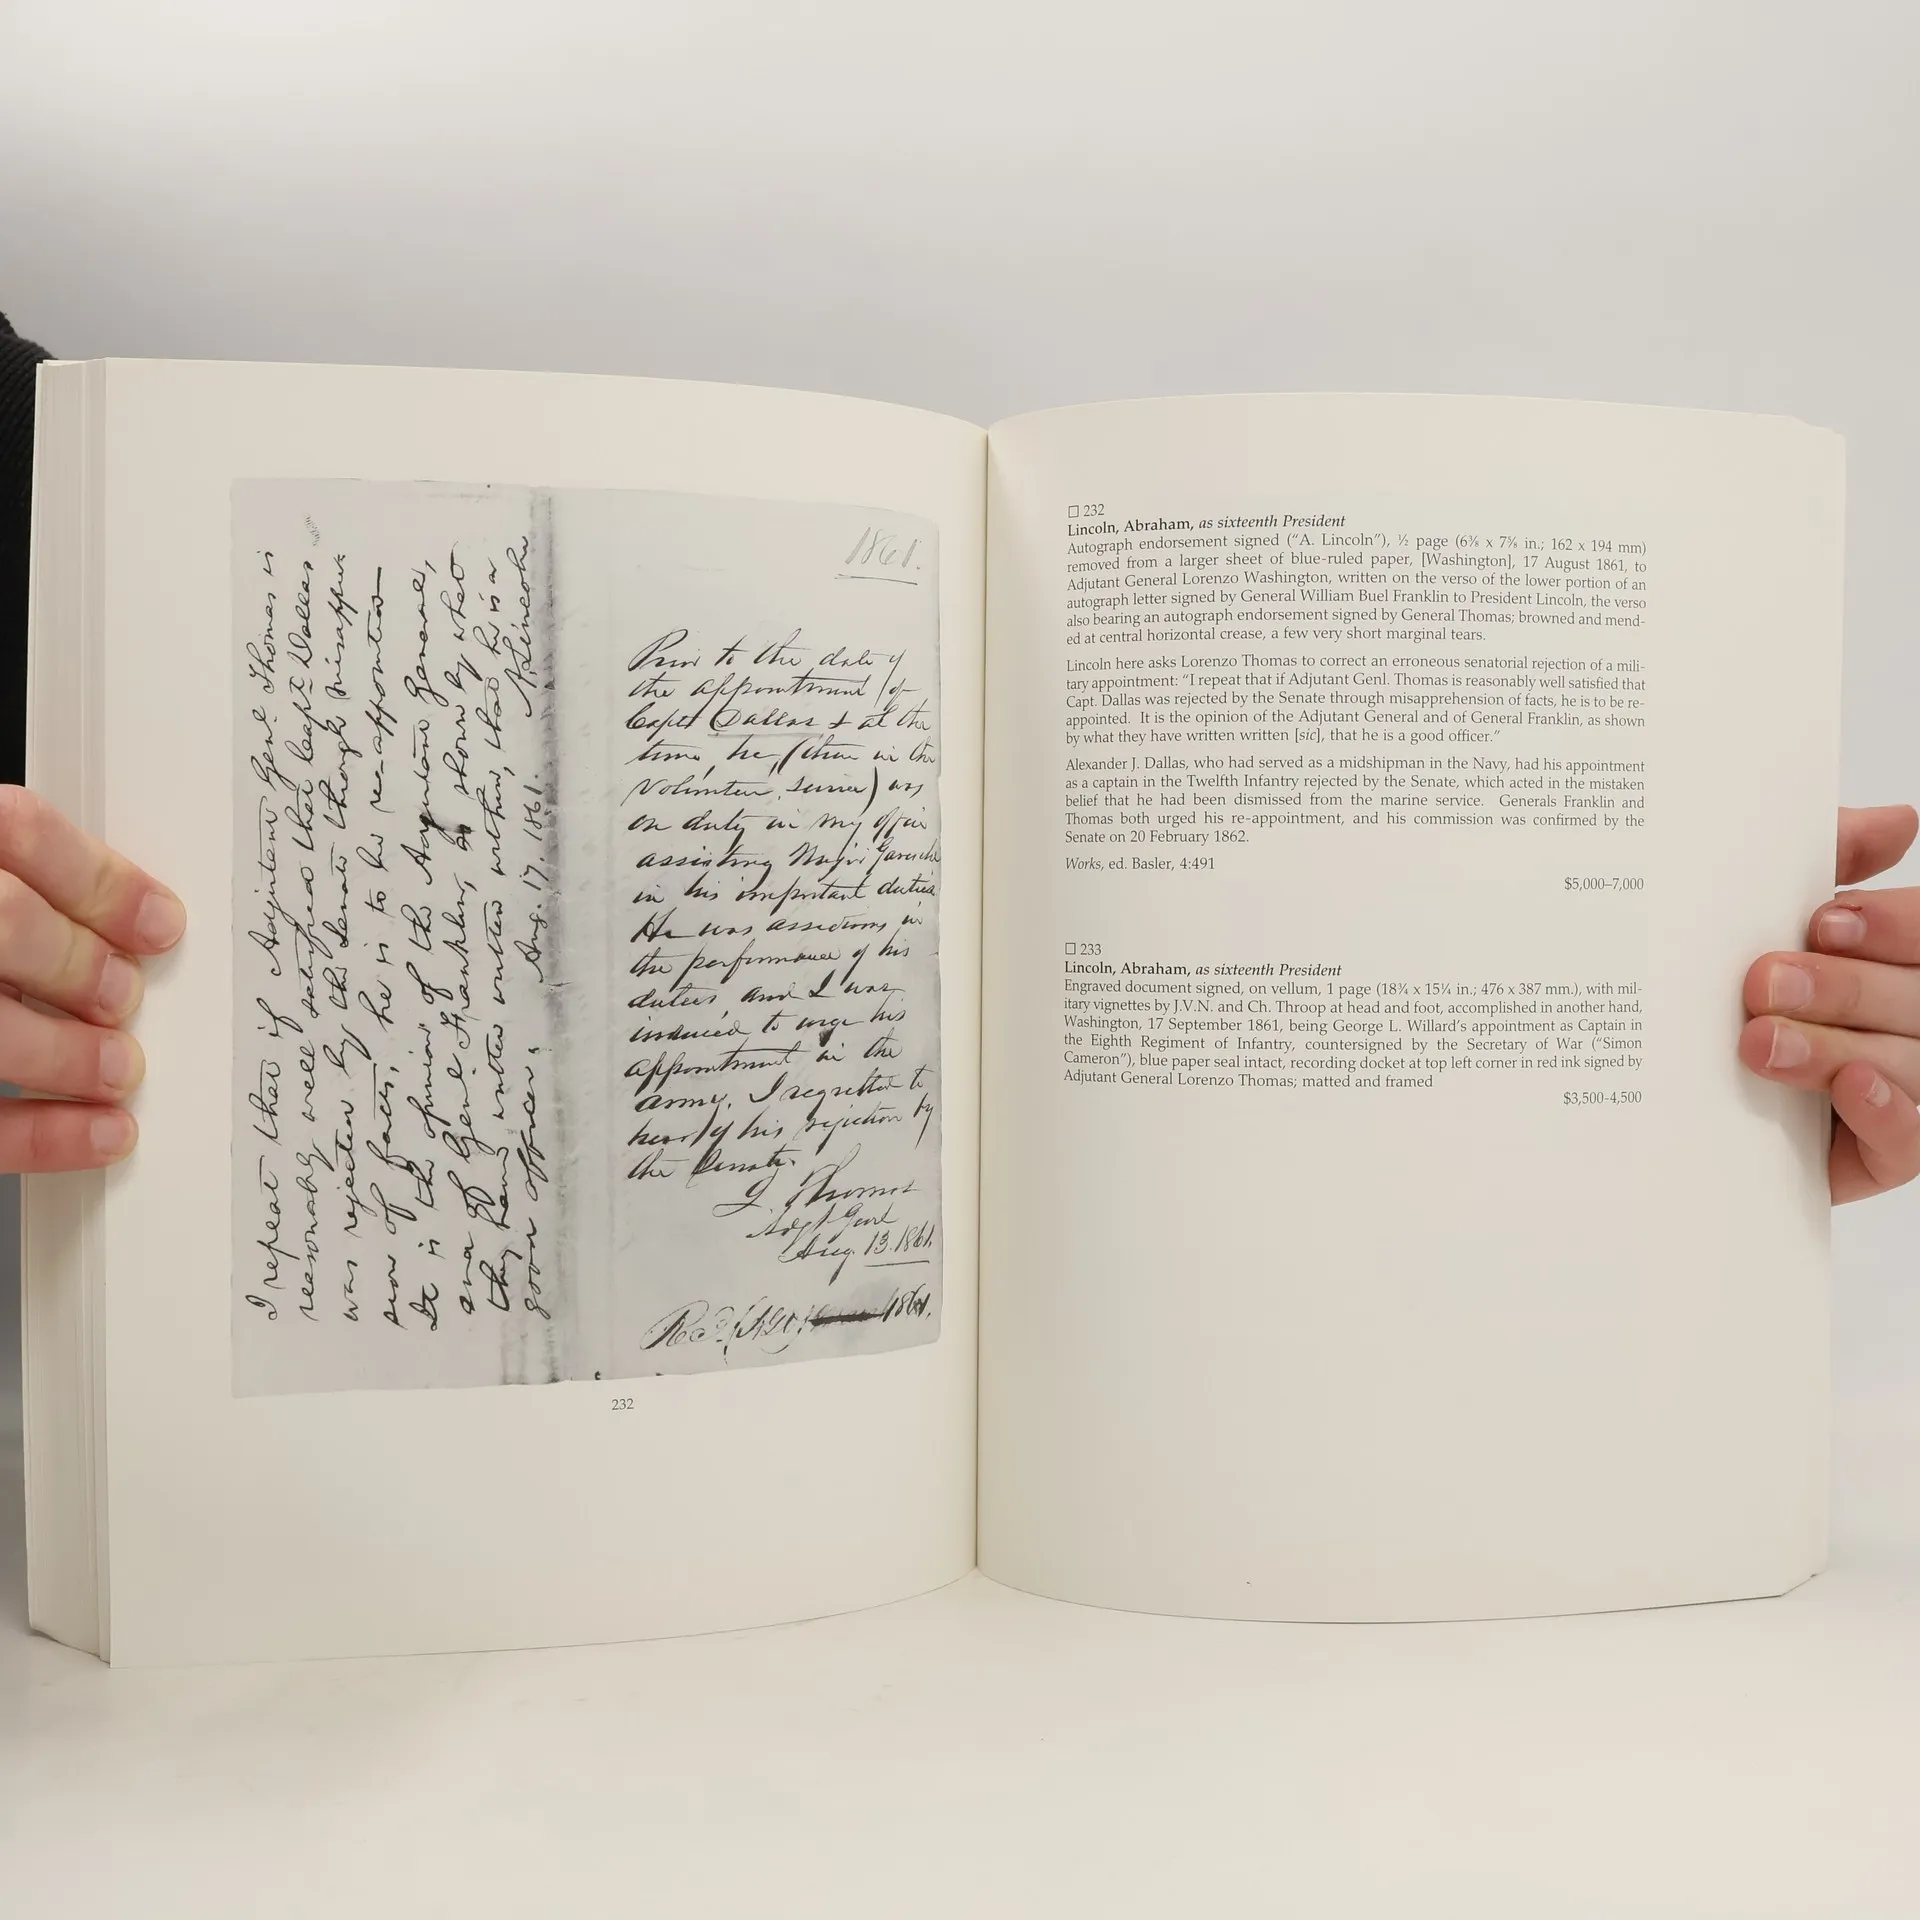 I repeat that if Adjutant Genl. Thomas is
reasonably well satisfied that Capt. Dallas
was rejected by the Senate through misappre-
sion of facts, he is to be re-appointed
It is the opinion of the Adjutant General,
and of Genl. Franklin, as shown by what
they have written written within, that he is a
good officer.
Aug. 17. 1861. A. Lincoln
1861.
Prior to the date of
the appointment of
Capt Dallas & at the
time, he, (then in the
Volunteer service) was
on duty in my office
assisting Major Garesché
in his important duties
He was assiduous in
the performance of his
duties and I was
induced to urge his
appointment in the
army. I regretted to
hear of his rejection by
the Senate.
L Thomas
Adjt Genl
Aug. 13. 1861.
Recd. (AGO) 1861.
232
☐ 232
Lincoln, Abraham, as sixteenth President
Autograph endorsement signed (“A. Lincoln”), ½ page (6⅜ x 7⅝ in.; 162 x 194 mm)
removed from a larger sheet of blue-ruled paper, [Washington], 17 August 1861, to
Adjutant General Lorenzo Washington, written on the verso of the lower portion of an
autograph letter signed by General William Buel Franklin to President Lincoln, the verso
also bearing an autograph endorsement signed by General Thomas; browned and mend-
ed at central horizontal crease, a few very short marginal tears.
Lincoln here asks Lorenzo Thomas to correct an erroneous senatorial rejection of a mili-
tary appointment: “I repeat that if Adjutant Genl. Thomas is reasonably well satisfied that
Capt. Dallas was rejected by the Senate through misapprehension of facts, he is to be re-
appointed. It is the opinion of the Adjutant General and of General Franklin, as shown
by what they have written written [sic], that he is a good officer.”
Alexander J. Dallas, who had served as a midshipman in the Navy, had his appointment
as a captain in the Twelfth Infantry rejected by the Senate, which acted in the mistaken
belief that he had been dismissed from the marine service. Generals Franklin and
Thomas both urged his re-appointment, and his commission was confirmed by the
Senate on 20 February 1862.
Works, ed. Basler, 4:491
$5,000–7,000
☐ 233
Lincoln, Abraham, as sixteenth President
Engraved document signed, on vellum, 1 page (18¾ x 15¼ in.; 476 x 387 mm.), with mil-
itary vignettes by J.V.N. and Ch. Throop at head and foot, accomplished in another hand,
Washington, 17 September 1861, being George L. Willard’s appointment as Captain in
the Eighth Regiment of Infantry, countersigned by the Secretary of War (“Simon
Cameron”), blue paper seal intact, recording docket at top left corner in red ink signed by
Adjutant General Lorenzo Thomas; matted and framed
$3,500-4,500